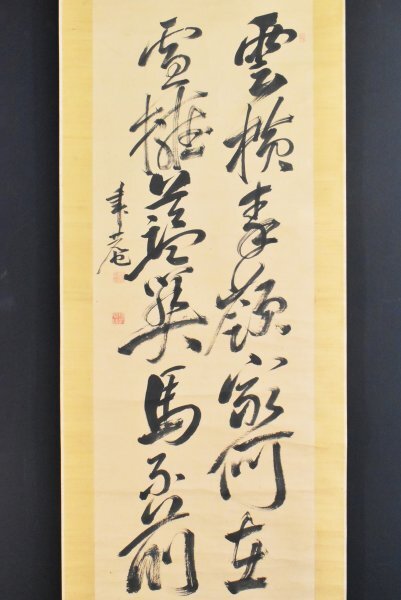 雲横秦嶺家何在
雪擁藍関馬不前